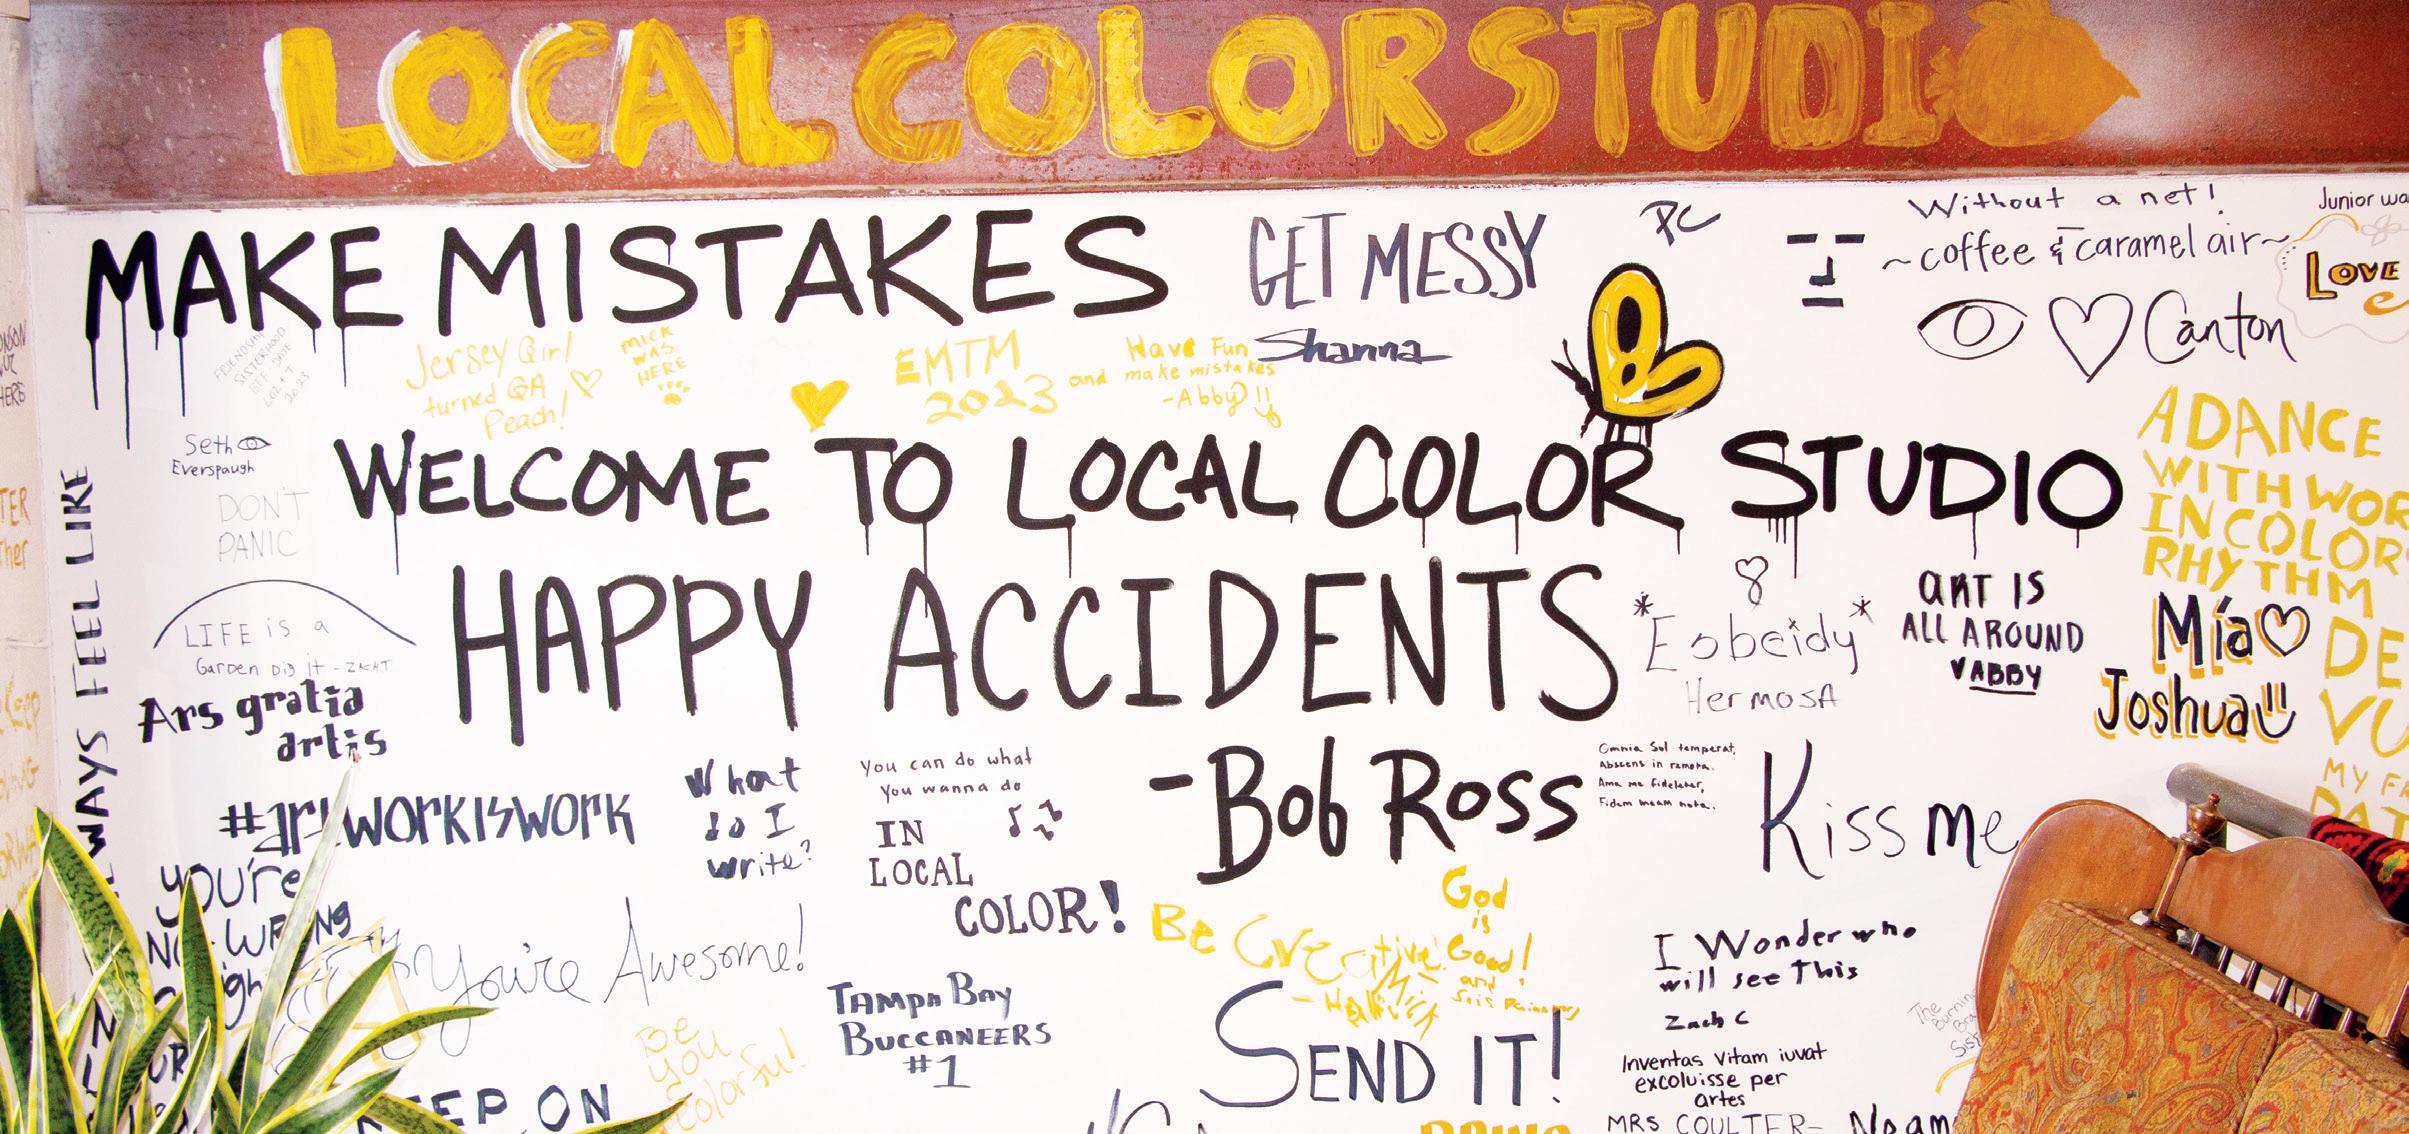 LOCAL COLOR STUDIO
MAKE MISTAKES
GET MESSY
Shanna
PC
Without a net!
~coffee & caramel air~
Canton
Junior
LOVE
FRIENDSHIP
SISTERHOOD
DATE
2023
Jersey Girl
turned GA
Peach!
MICK
WAS
HERE
EMTM
2023
Have Fun
and make mistakes
-Abby
Seth
Everspaugh
DON'T
PANIC
WELCOME TO LOCAL COLOR STUDIO
A DANCE
WITH
IN COLOR
RHYTHM
HAPPY ACCIDENTS
-BOB ROSS
FEEL LIKE
LIFE is a
Garden Dig it - ZACH T.
Ars gratia
artis
#artworkiswork
What
do I
write?
You can do what
You wanna do
IN
LOCAL
COLOR!
*Esbeidy*
HermosA
ART IS
ALL AROUND
VABBY
Mía
Joshua
Omnia Sol temperat,
Absens in remota.
Ama me fideleter,
Fidem meam nota.
Kiss me
MY
You're
You're Awesome!
BE
YOU
Colorful!
TAMPA BAY
BUCCANEERS
#1
Be Creative!
God
is
Good!
and
SEND IT!
I Wonder who
will see This
Zach C
Inventas vitam iuvat
excoluisse per
artes
The
Burning
MRS COULTER-
Noam
ON